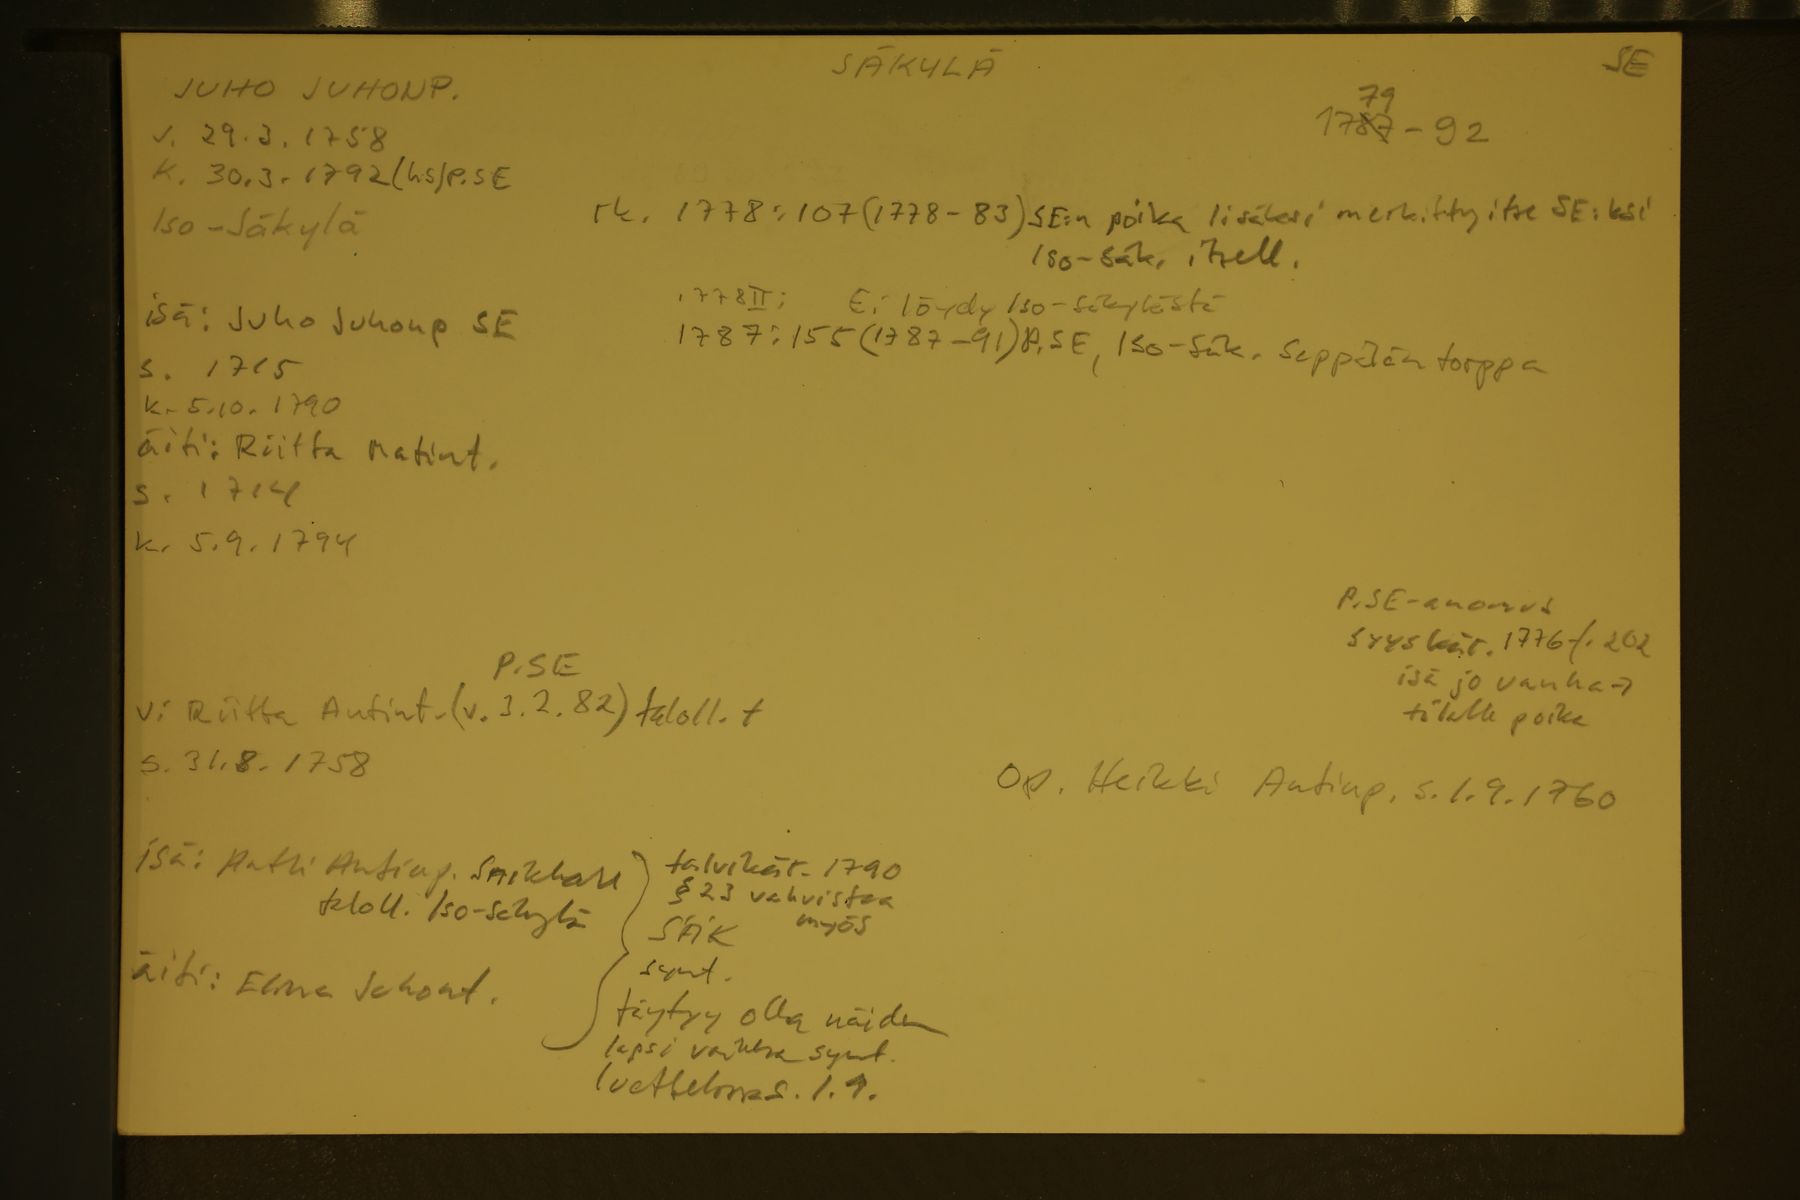 SÄKYLÄ
SE
JUHO JUHONP.
v. 29.3.1758
k. 30.3.1792 (hs) P.SE
Iso-Säkylä
79
1787-92
rk. 1778:107 (1778-83) SE:n poika lisäksi merkitty itse SE:ksi
Iso-Säk. itsell.
1778II: Ei löydy Iso-Säkylästä
1787:155 (1787-91) P.SE, Iso-Säk. Seppälän torppa
isä: Juho Juhonp SE
s. 1715
k. 5.10.1790
äiti: Riitta Matint.
s. 1714
k. 5.9.1794
P.SE-anomus
syyskär. 1776 f. 202
isä jo vanha →
tilalle poika
P.SE
v: Riitta Antint. (v. 3.2.82) taloll. t
s. 31.8.1758
Op. Heikki Antinp. s. 1.9.1760
isä: Antti Antinp.
taloll. Iso-Säkylä
äiti: Elina Juhont.
talvikär. 1790
§ 23 vahvistaa
myös
SÄIK
synt.
täytyy olla näiden
lapsi vaikka synt.
luettelossa s. 1.9.